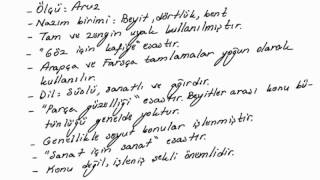 - Ölçü: Aruz
- Nazım birimi: Beyit, dörtlük, bent
- Tam ve zengin uyak kullanılmıştır.
- "Göz için kafiye" esastır.
- Arapça ve Farsça tamlamalar yoğun olarak
kullanılır.
- Dil: Süslü, sanatlı ve ağırdır.
- "Parça güzelliği" esastır. Beyitler arası konu bü-
tünlüğü genelde yoktur.
- Genellikle soyut konular işlenmiştir.
- "Sanat için sanat" esastır.
- Konu değil, işleniş şekli önemlidir.